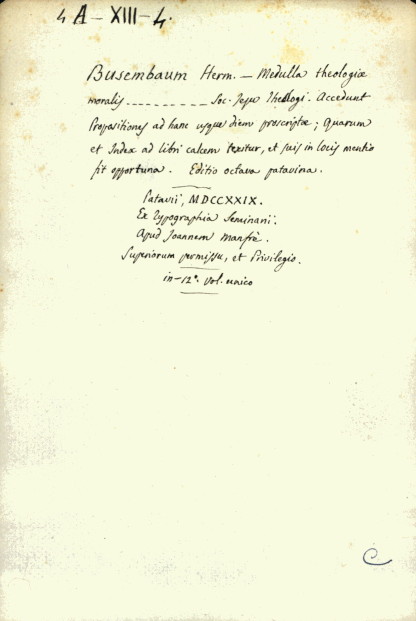 4 A - XIII - 4.
Busembaum Herm. — Medulla theologiæ
moralis _ _ _ _ _ _ _ _ _ Soc. Jesu Theologi. Accedunt
Propositiones ad hanc usque diem proscriptæ ; Quarum
et Index ad libri calcem texitur, et suis in locis mentio
fit opportuna. Editio octava patavina.
Patavii, MDCCXXIX.
Ex Typographia Seminarii.
Apud Joannem Manfrè.
Superiorum permissu, et Privilegio.
in-12°. vol. unico
C